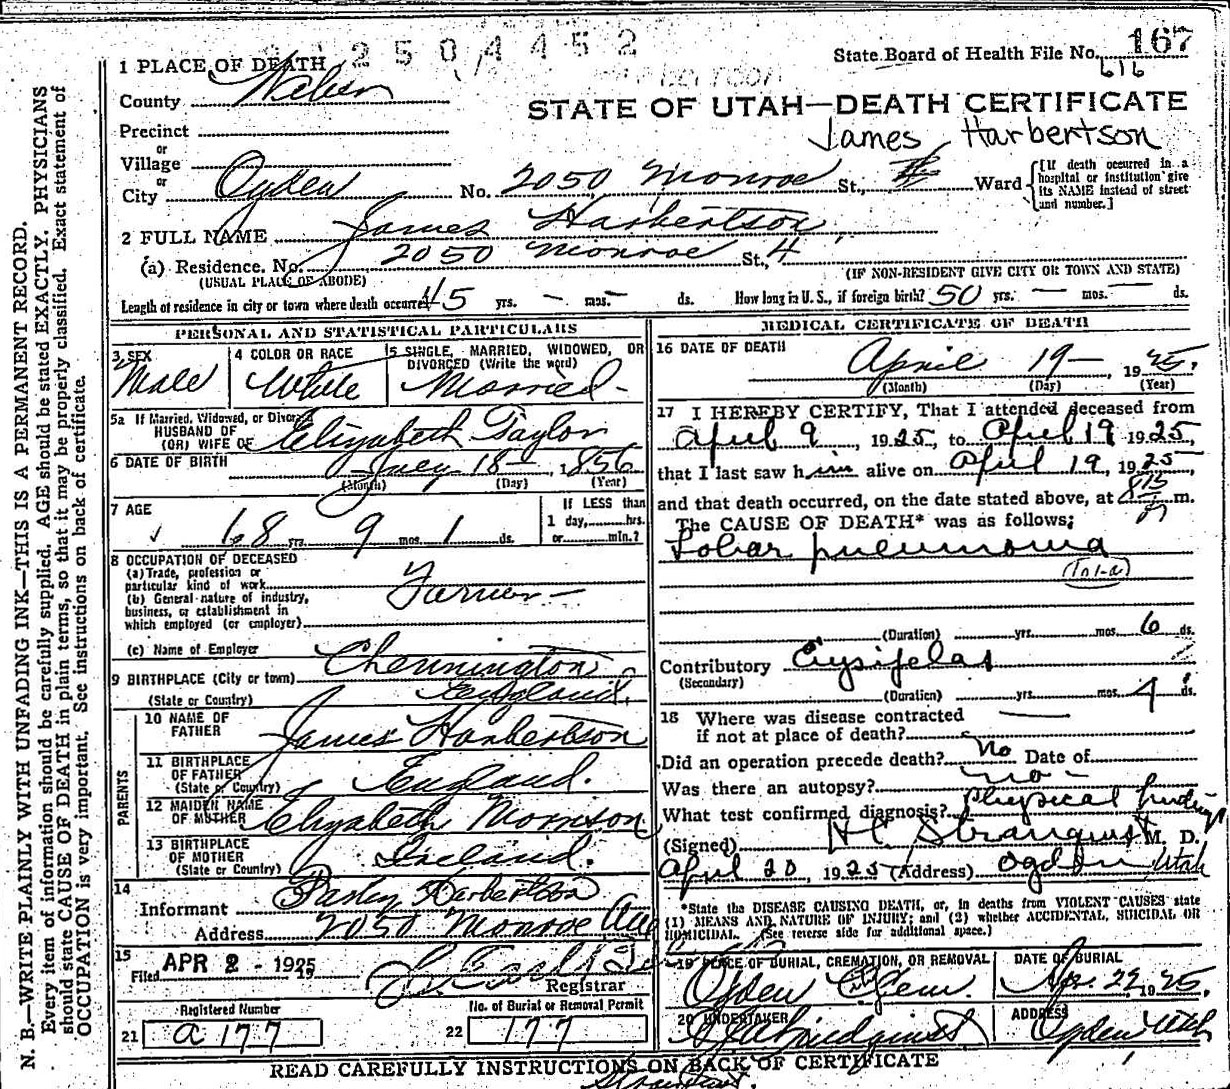 2 5 0 4 4 5 2
State Board of Health File No. 167
616
1 PLACE OF DEATH
County Weber
STATE OF UTAH—DEATH CERTIFICATE
James Harbertson
Precinct
or
Village
or
City Ogden No. 2050 Monroe St., Ward
[If death occurred in a hospital or institution give its NAME instead of street and number.]
2 FULL NAME James Harbertson
(a) Residence. No. 2050 Monroe St., 4
(USUAL PLACE OF ABODE) (IF NON-RESIDENT GIVE CITY OR TOWN AND STATE)
Length of residence in city or town where death occurred 45 yrs. — mos. — ds. How long in U. S., if foreign birth? 50 yrs. — mos. — ds.
PERSONAL AND STATISTICAL PARTICULARS
3 SEX
Male
4 COLOR OR RACE
White
5 SINGLE, MARRIED, WIDOWED, OR DIVORCED (Write the word)
Married
5a If Married, Widowed, or Divorced
HUSBAND OF
(OR) WIFE OF Elizabeth Taylor
6 DATE OF BIRTH July 18 — , 1856
(Month) (Day) (Year)
7 AGE
68 yrs. 9 mos. 1 ds.
If LESS than
1 day, hrs.
or min.?
8 OCCUPATION OF DECEASED
(a) Trade, profession or
particular kind of work Farmer —
(b) General nature of industry,
business, or establishment in
which employed (or employer)
(c) Name of Employer
9 BIRTHPLACE (City or town) Chennington
(State or Country) England
PARENTS
10 NAME OF
FATHER James Harbertson
11 BIRTHPLACE
OF FATHER
(State or Country) England.
12 MAIDEN NAME
OF MOTHER Elizabeth Morrison
13 BIRTHPLACE
OF MOTHER
(State or Country) Ireland.
14
Informant Parley Harbertson
Address 2050 Monroe Ave
15
Filed APR 2 - 1925
Registrar
Registered Number
21 a 177
No. of Burial or Removal Permit
22 177
MEDICAL CERTIFICATE OF DEATH
16 DATE OF DEATH
April 19 — , 1925.
(Month) (Day) (Year)
17 I HEREBY CERTIFY, That I attended deceased from
April 9, 1925, to April 19 1925,
that I last saw him alive on April 19, 1925,
and that death occurred, on the date stated above, at 815 P m.
The CAUSE OF DEATH* was as follows:
Lobar pneumonia
(101-a)
(Duration) yrs. mos. 6 ds.
Contributory Erysifelas
(Secondary)
(Duration) yrs. mos. 4 ds.
18 Where was disease contracted
if not at place of death?
Did an operation precede death? No Date of
Was there an autopsy? no —
What test confirmed diagnosis? Physical findings
(Signed) H C Stranquist M. D.
April 20, 1925 (Address) Ogden Utah
*State the DISEASE CAUSING DEATH, or, in deaths from VIOLENT CAUSES state
(1) MEANS AND NATURE OF INJURY; and (2) whether ACCIDENTAL, SUICIDAL OR
HOMICIDAL. (See reverse side for additional space.)
19 PLACE OF BURIAL, CREMATION, OR REMOVAL
Ogden City Cem.
DATE OF BURIAL
Apr. 22, 1925.
20 UNDERTAKER
ADDRESS
Ogden Utah
READ CAREFULLY INSTRUCTIONS ON BACK OF CERTIFICATE
N. B.—WRITE PLAINLY WITH UNFADING INK—THIS IS A PERMANENT RECORD.
Every item of information should be carefully supplied. AGE should be stated EXACTLY. PHYSICIANS
should state CAUSE OF DEATH in plain terms, so that it may be properly classified. Exact statement of
OCCUPATION is very important. See instructions on back of certificate.